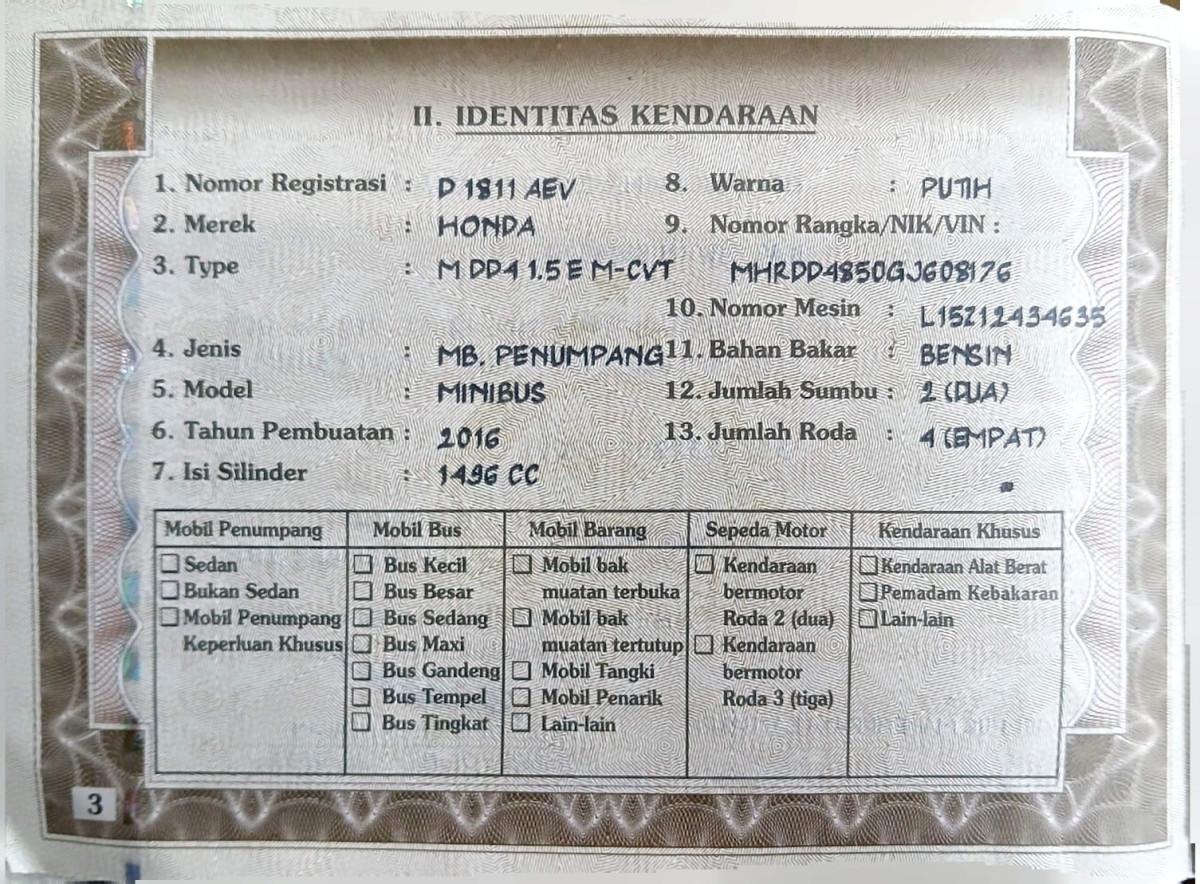 II. IDENTITAS KENDARAAN
1. Nomor Registrasi : D 1811 AEV
2. Merek : HONDA
3. Type : M DD4 1.5 E M-CVT
4. Jenis : MB. PENUMPANG
5. Model : MINIBUS
6. Tahun Pembuatan : 2016
7. Isi Silinder : 1496 CC
8. Warna : PUTIH
9. Nomor Rangka/NIK/VIN :
MHRDD4850GJ608176
10. Nomor Mesin : L15Z12434635
11. Bahan Bakar : BENSIN
12. Jumlah Sumbu : 2 (DUA)
13. Jumlah Roda : 4 (EMPAT)
Mobil Penumpang
Sedan
Bukan Sedan
Mobil Penumpang
Keperluan Khusus
Mobil Bus
Bus Kecil
Bus Besar
Bus Sedang
Bus Maxi
Bus Gandeng
Bus Tempel
Bus Tingkat
Mobil Barang
Mobil bak
muatan terbuka
Mobil bak
muatan tertutup
Mobil Tangki
Mobil Penarik
Lain-lain
Sepeda Motor
Kendaraan
bermotor
Roda 2 (dua)
Kendaraan
bermotor
Roda 3 (tiga)
Kendaraan Khusus
Kendaraan Alat Berat
Pemadam Kebakaran
Lain-lain
3